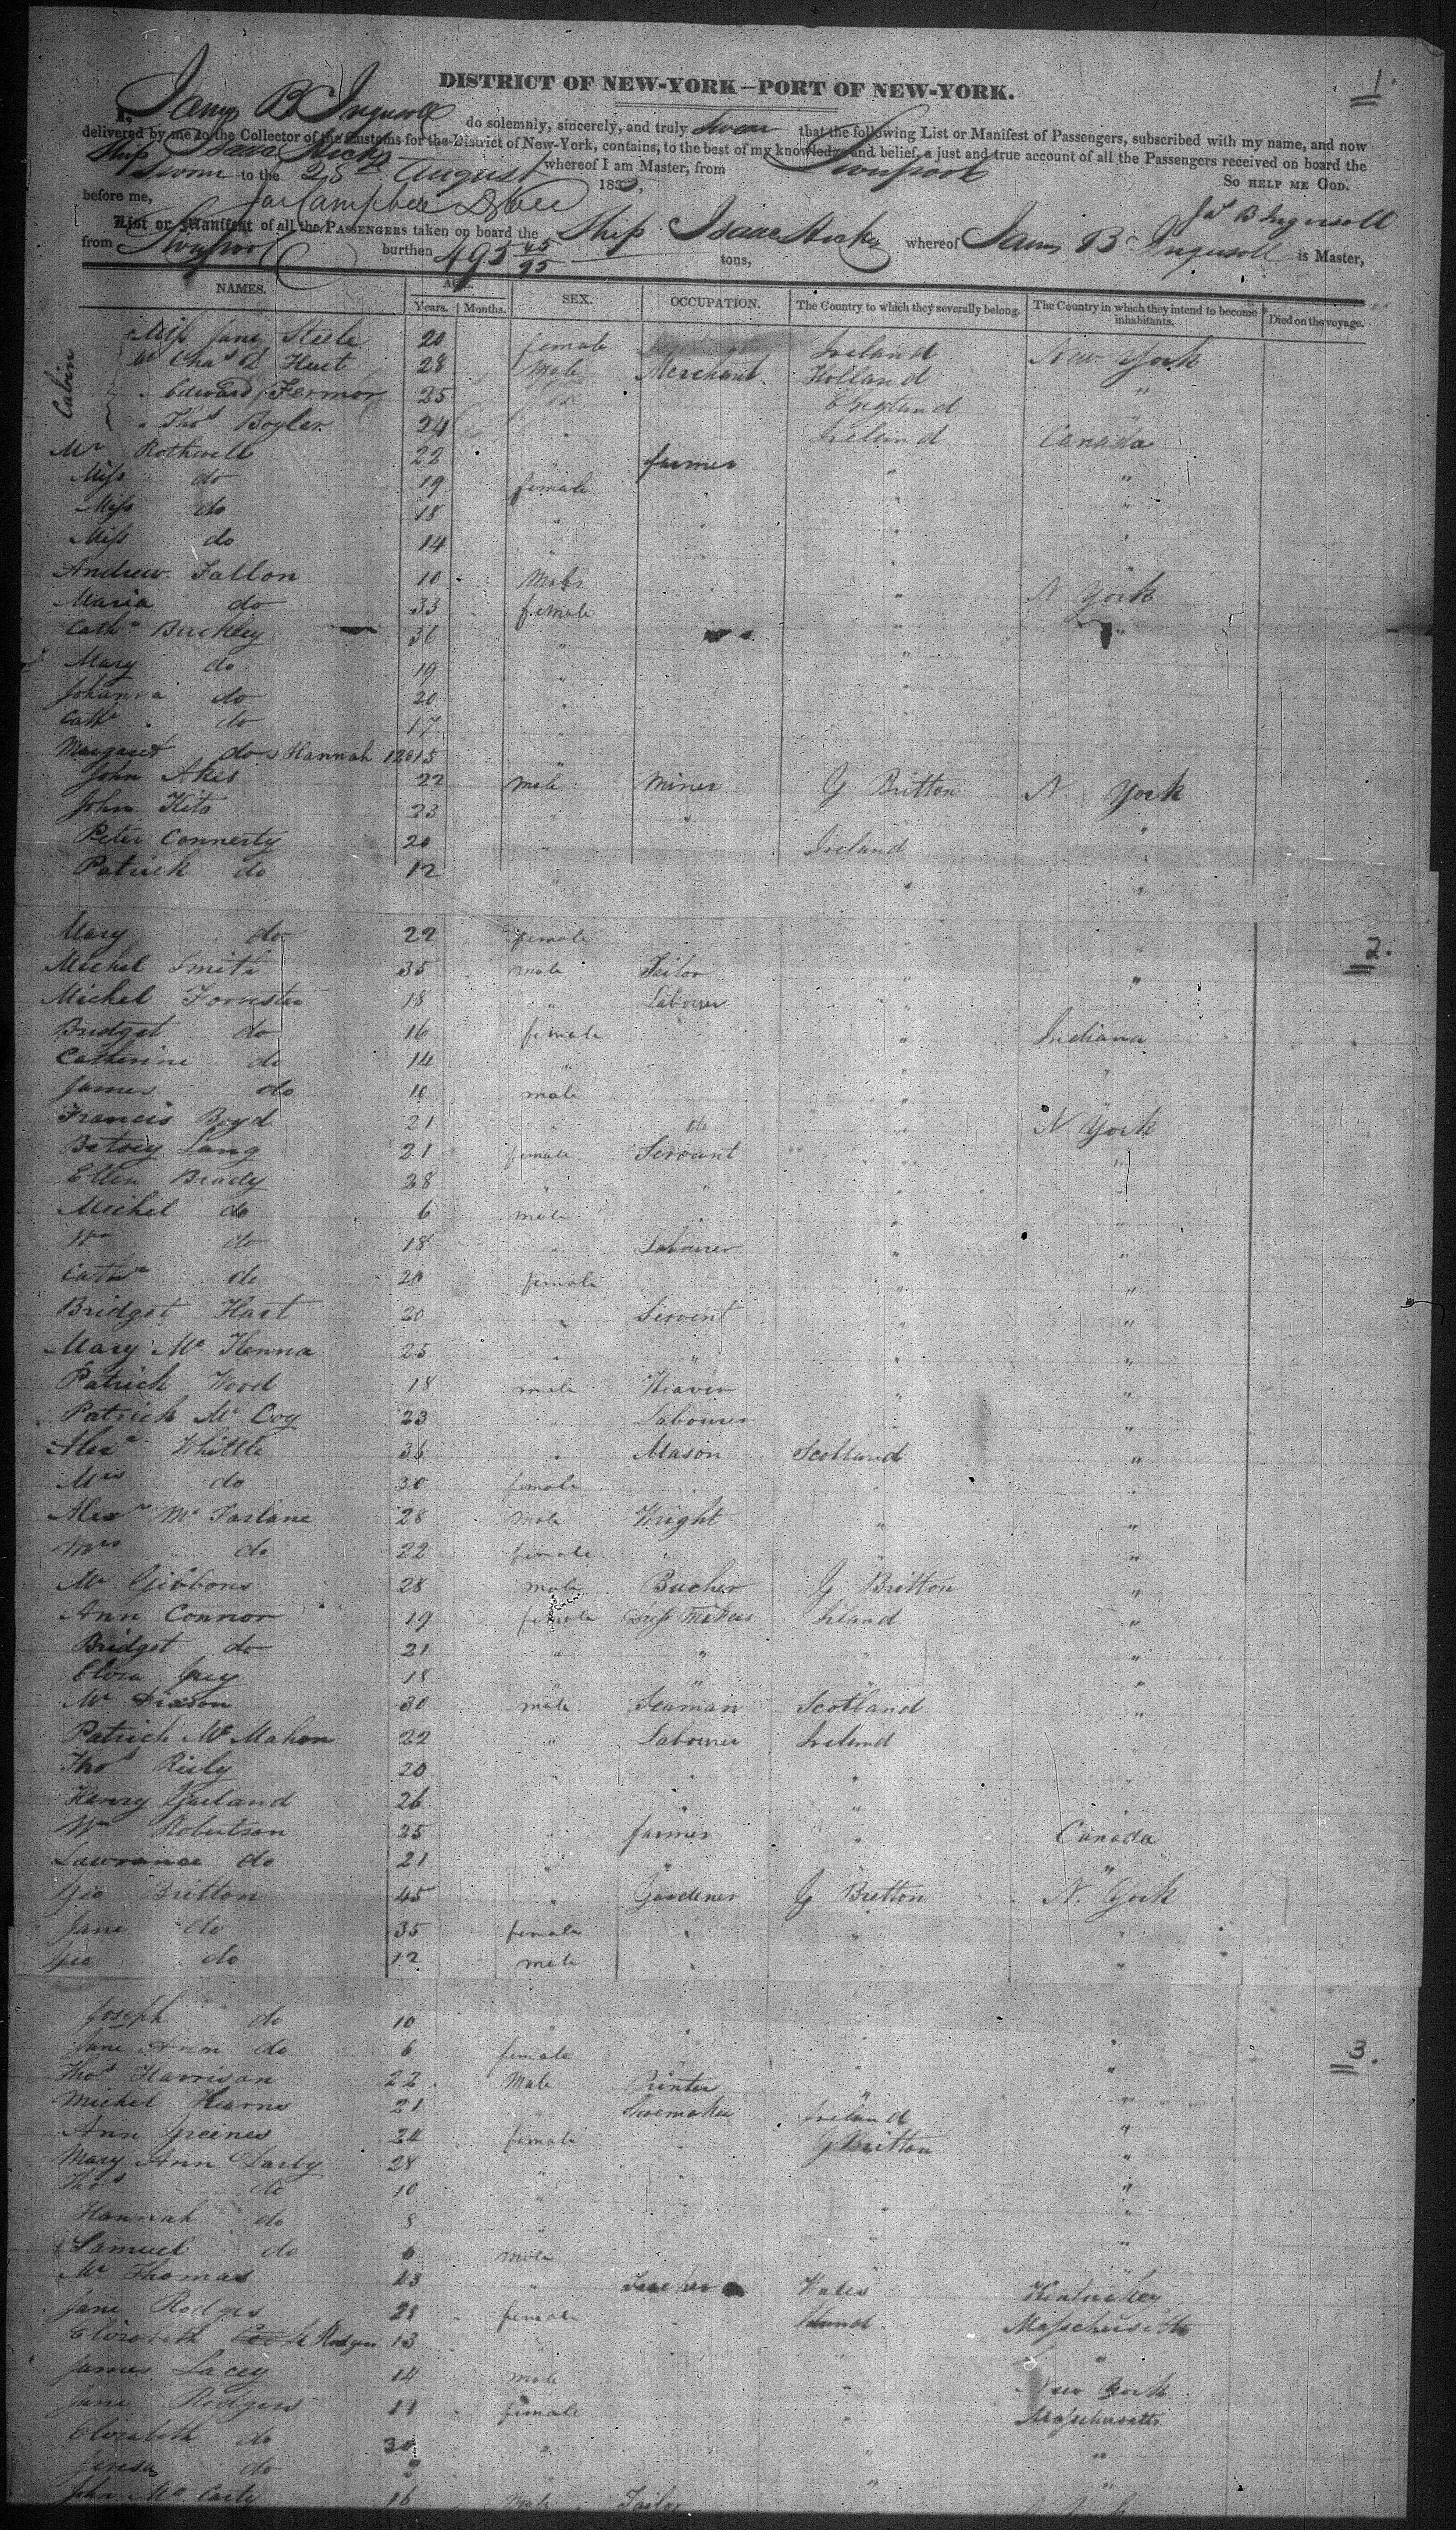 1.
DISTRICT OF NEW-YORK—PORT OF NEW-YORK.
I, James B Ingersoll do solemnly, sincerely, and truly Swear that the following List or Manifest of Passengers, subscribed with my name, and now
delivered by me to the Collector of the Customs for the District of New-York, contains, to the best of my knowledge and belief, a just and true account of all the Passengers received on board the
Ship Isaac Hicks whereof I am Master, from Liverpool
Sworn to the 28th August 183 , So HELP ME GOD.
before me, Jas B Ingersoll
List or Manifest of all the PASSENGERS taken on board the Ship Isaac Hicks whereof James B Ingersoll is Master,
from Liverpool burthen 495 45/95 tons,
NAMES. AGE. SEX. OCCUPATION. The Country to which they severally belong. The Country in which they intend to become inhabitants. Died on the voyage.
Years. Months.
Cabin
Miss Jane Steele 20 female Ireland New York
Mr Chas D Hurt 28 Male Merchant Holland "
" Edward Fermor 25 England "
" Thos Boyler 24 " Ireland Canada
Mr Rothwell 22 " farmer " "
Miss do 19 female " " "
Miss do 18 " " " "
Miss do 14 " " "
Andrew Fallon 10 Male " " N York
Maria do 33 female " "
Cathe Buckley 36 " "
Mary do 19 " "
Johanna do 20 "
Cathe do 17
Margaret do & Hannah 12 & 15 "
John Akes 22 male Miner G Britton N. York
John Kito 23 " " "
Peter Connerty 20 " Ireland
Patrick do 12 " " "
2.
Mary do 22 female "
Michel Smith 35 male Tailor " "
Michel Forrester 18 " Labourer "
Bridget do 16 female " Indiana
Catherine do 14 " " "
James do 10 male "
Francis Boyd 21 " do " N York
Betsey Lang 21 female Servant " "
Ellen Brady 28 " " " "
Michel do 6 male " " "
Wm do 18 " Labourer " "
Cathe do 20 female " "
Bridget Hart 20 " Servent " "
Mary Mc Kenna 25 " " " "
Patrick Wood 18 male Weaver " "
Patrick Mc Coy 23 " Labourer "
Alexr Whittle 36 " Mason Scotland "
Mrs do 30 female " "
Alexr Mc Farlane 28 male Wright " "
Mrs do 22 female " "
Mr Gibbons 28 male Bucher G Britton "
Ann Connor 19 female Dress Makers Irland "
Bridget do 21 " " " "
Eliza Grey 18 " " " "
Mr Dixson 30 male Seaman Scotland "
Patrick Mc Mahon 22 " Labourer Ireland
Thos Riely 20 " " "
Henry Garland 26 " "
Wm Robertson 25 " farmer " Canada
Lawrance do 21 " " "
Geo Britton 45 " Gardener G Britton N. York
Jane do 35 female " " "
Geo do 12 male " "
3.
Joseph do 10 " " " "
Jane Ann do 6 female "
Thos Harrison 22 Male Printer " "
Michel Kearns 21 " Shoemaker Ireland "
Ann Greines 24 female " G Britton "
Mary Ann Darby 28 " " "
Thos do 10 " "
Hannah do 8 " " "
Samuel do 6 male "
Mr Thomas 43 " Teacher Wales Kentuckey
Jane Rodgers 28 female " Massachusetts
Elizabeth Rodgers 13 " "
James Lacey 14 male " New York
Jane Rodgers 11 female " Massachusetts
Elizabeth do " " "
Teresa do " "
John Mc Carty 16 Male Tailor